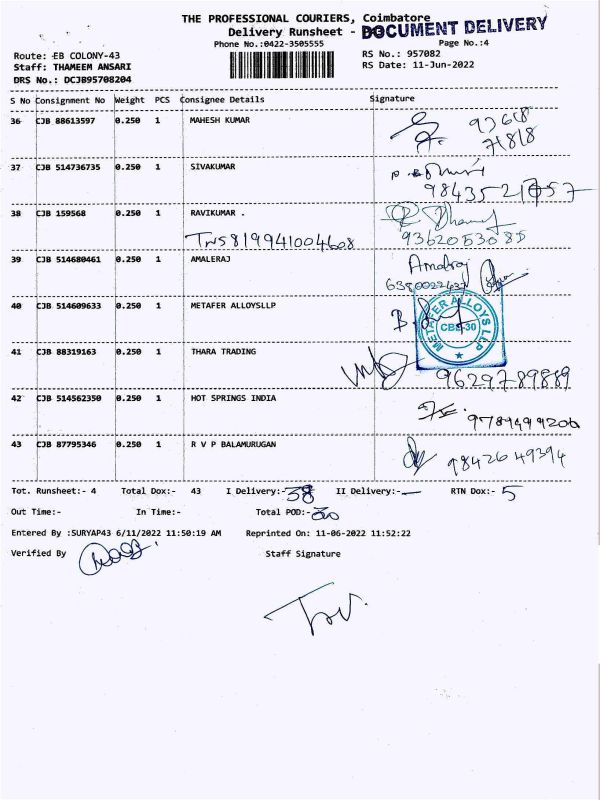 THE PROFESSIONAL COURIERS, Coimbatore
Delivery Runsheet -
DOCUMENT DELIVERY
Phone No.:0422-3505555
Page No.:4
Route: EB COLONY-43
RS No.: 957082
Staff: THAMEEM ANSARI
RS Date: 11-Jun-2022
DRS No.: DCJB95708204
S No Consignment No Weight PCS Consignee Details Signature
36 CJB 88613597 0.250 1 MAHESH KUMAR
37 CJB 514736735 0.250 1 SIVAKUMAR
38 CJB 159568 0.250 1 RAVIKUMAR .
TN5819941004608
39 CJB 514680461 0.250 1 AMALERAJ Amalraj
40 CJB 514609633 0.250 1 METAFER ALLOYSLLP
METAFER ALLOYS LLP
CBE-30
41 CJB 88319163 0.250 1 THARA TRADING
9629789889
42 CJB 514562350 0.250 1 HOT SPRINGS INDIA
9789499206
43 CJB 87795346 0.250 1 R V P BALAMURUGAN
9842649394
Tot. Runsheet:- 4 Total Dox:- 43 I Delivery:- 38 II Delivery:- — RTN Dox:- 5
Out Time:- In Time:- Total POD:-
Entered By :SURYAP43 6/11/2022 11:50:19 AM Reprinted On: 11-06-2022 11:52:22
Verified By Staff Signature